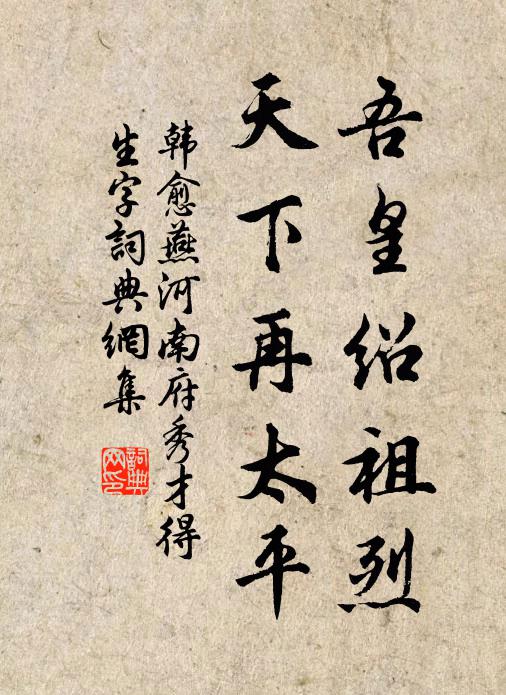 吾皇绍祖烈
天下再太平
韩愈燕河南府秀才得
生字詞典網集
詞典
网印